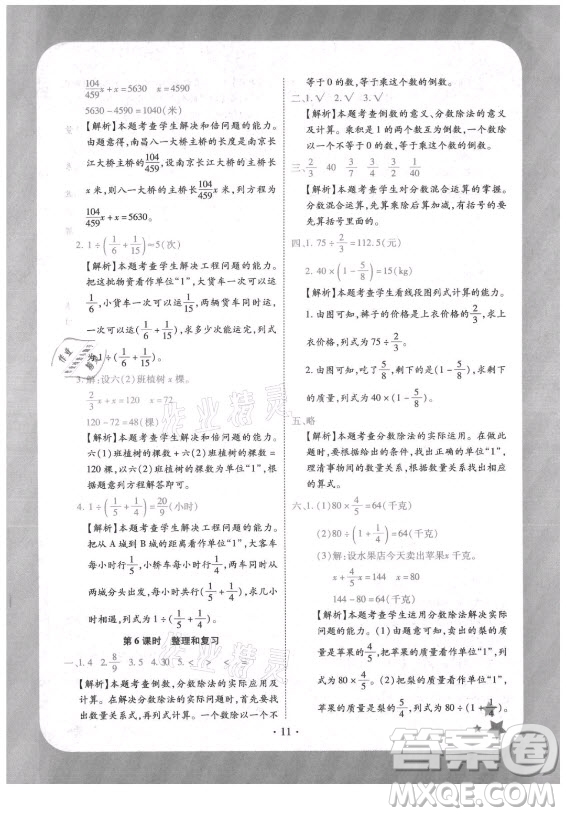 104/459 x+x=5630　x=4590
5630-4590=1040(米)
【解析】本题考查学生解决和倍问题的能力。
由题意得,南昌八一大桥主桥的长度是南京长
江大桥主桥的104/459,设南京长江大桥主桥长
x 米,则八一大桥主桥长104/459 x 米,列方程为
104/459 x+x=5630。
2. 1÷(1/6+1/15)=5(次)
【解析】本题考查学生解决工程问题的能力。
把这批物资看作单位“1”,大货车一次可以运
1/6,小货车一次可以运1/15,两辆货车同时运
一次可以运(1/6+1/15),求多少次能运完,列式
为1÷(1/6+1/15)。
3. 解:设六(2)班植树 x 棵。
2/3 x+x=120　x=72
120-72=48(棵)
【解析】本题考查学生解决和倍问题的能力。
六(1)班植树的棵数+六(2)班植树的棵数=
120 棵,以六(2)班植树的棵数为单位“1”,根
据题意列方程解答即可。
4. 1÷(1/4+1/5)=20/9(小时)
【解析】本题考查学生解决工程问题的能力。
把从 A 城到 B 城的距离看作单位“1”,大客车
每小时行1/5,小轿车每小时行1/4,求几小时
两车同时行,每小时行(1/5+1/4),求几小时
第 6 课时　整理和复习
一、1. 4　2. 8/9　3. 15　30　4. 20　5. <　>　<　=
【解析】本题考查倒数,分数除法的实际应用及
计算。解决分数除法的实际问题时,首先要找
出数量关系式,再列式计算。一个数除以一个不
等于 0 的数,等于乘这个数的倒数。
二、1. √　2. √　3. √
【解析】本题考查倒数的意义、分数除法的意义
及计算。乘积是 1 的两个数互为倒数。一个数除
以一个不等于 0 的数,等于乘这个数的倒数。
三、2/3　40　3/5　3/4　1/2　4/7
【解析】本题考查学生对分数混合运算的掌握。
分数混合运算,先算乘除后算加减,有括号的要
先算括号里面的。
四、1. 75÷2/3=112.5(元)
2. 40×(1-5/8)=15(kg)
【解析】本题考查学生看线段图列式计算的能力。
1. 由图可知,裤子的价格是上衣价格的2/3,求上
衣的价格,列式为 75÷2/3。
2. 由图可知,用去了40 kg 的5/8,求剩下的
的质量,列式为 40×(1-5/8)。
五、略
【解析】本题考查分数除法的实际运用。解决此
类问题时,找出正确的单位“1”,根据题意,
理清事物间的数量关系,根据数量关系找出相应
的算式。
六、1. (1)80×4/5=64(千克)
(2)80÷(1+1/4)=64(千克)
(3)解:设水果店今天卖出苹果 x 千克。
x+4/5 x=144　x=80
144-80=64(千克)
【解析】本题考查学生运用分数除法解决实际
问题的能力。
(1)把苹果的质量看作单位“1”,则梨的质量
是苹果的质量的4/5。(2)把梨的质量看作单位“1”,
苹果的质量为梨的5/4,梨的质量×(1+1/4)=
· 11 ·
作业精灵
作业精灵
答案圈
MXQE.COM